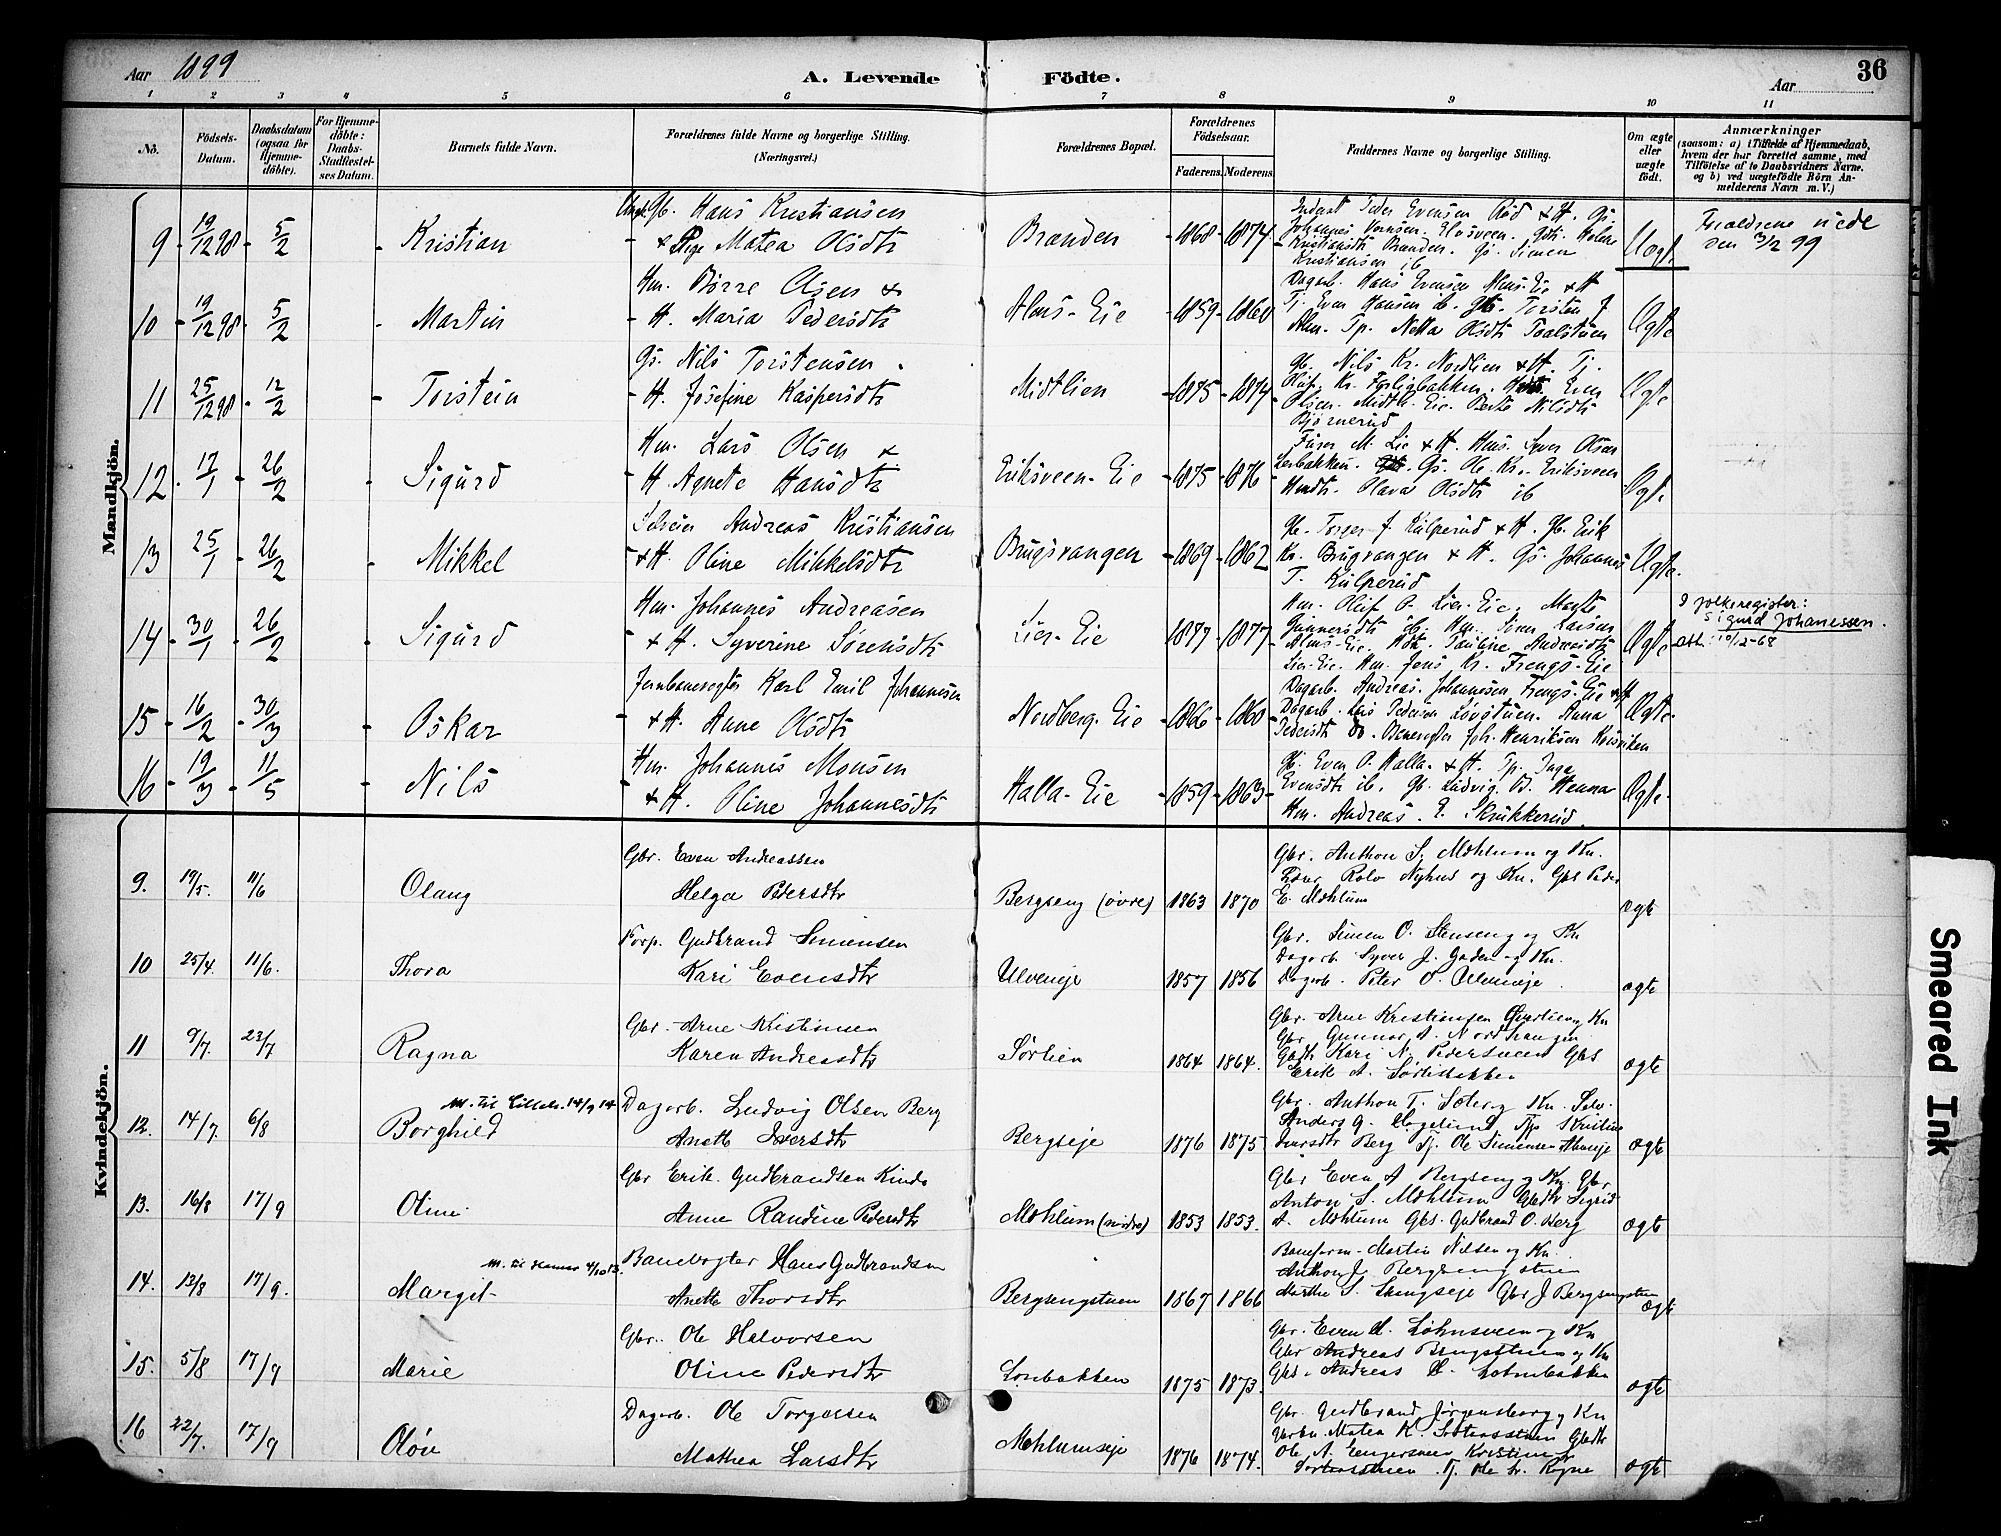 Aar 1899
A. Levende Födte.
Aar
36
1 2 3 4 5 6 7 8 9 10 11
No.
Födsels-Datum.
Daabsdatum (ogsaa for Hjemmedöbte).
For Hjemmedöbte: Daabs-Stadfæstelses Datum.
Barnets fulde Navn.
Forældrenes fulde Navne og borgerlige Stilling. (Næringsvei.)
Forældrenes Bopæl.
Forældrenes Födselsaar.
Faderens. Moderens.
Faddernes Navne og borgerlige Stilling.
Om ægte eller uægte födt.
Anmærkninger
(saasom: a) i Tilfælde af Hjemmedaab, hvem der har forrettet samme, med Tilföielse af to Daabsvidners Navne, og b) ved uægtefödte Börn Anmelderens Navn m. V.)
Mandkjön.
9 19/12 98 5/2 Kristian
Ungk. Gb. Hans Kristiansen
& Pige Matea Olsdtr
Brænden 1868 1874
Inderst Peder Evensen Rød & H. Gs.
Johannes
Kristiansdtr Brænden. Gs. Simen
Kristiansen ib
Uægt.
Forældrene viede
den 3/2 99
10 19/12 98 5/2 Martin
Hm. Børre Olsen &
H. Maria Pedersdtr
Alms-Eie 1859 1860
Dagarb. Hans Evensen Alms-Eie & H
Tj. Even Hansen ib. Torsten J
Alm. Tp. Netta Olsdtr
Ægte
11 25/12 98 12/2 Torstein
Gs. Nils Torstensen
H. Josefine Kaspersdtr
Midtlien 1875 1874
Gb. Nils Kr. Nordlien & H. Tj.
Oluf Kr. Even
Olsen Midtl. Eie. Berte Nilsdtr
Bjørnerud
Ægte
12 17/1 26/2 Sigurd
Hm. Lars Olsen &
H. Agnete Hansdtr
Eriksveen-Eie 1875 1876
M. Lie & H. Hm. Syver Olsen
Gs. Ole Kr. Eriksveen
Olava Olsdtr ib
Ægte
13 25/1 26/2 Mikkel
Selveier Andreas Kristiansen
& H. Oline Mikkelsdtr
Brugsvangen 1869 1862
Gb. Torger J. Kulperud & H. Gb. Erik
Kr. Brugvangen & H. Gs. Johannes
T. Kulperud
Ægte.
14 30/1 26/2 Sigurd
Hm. Johannes Andreasen
& H. Syverine Sørensdtr
Lien-Eie 1877 1877
Hm. Oluf P. Lien-Eie. Marte
Gunnersdtr ib. Hm. Simen Larsen
Alms-Eie. Pauline Andreasdtr
Lien-Eie. Hm. Jens Kr. Frengs-Eie
Ægte
I folkeregister:
Sigurd Johanessen.
10/12-68
15 16/2 30/3 Oskar
Jernbanevogter Karl Emil Johannesen
& H. Anne Olsdtr
Nordberg-Eie 1866 1860
Dagarb. Andreas Johannesen Frengs-Eie & H
Dagarb. Lars Pedersen Løvstuen. Anna
Pedersdtr do. Banevogter Joh. Henriksen
Ægte
16 19/3 11/5 Nils
Hm. Johannes Monsen
& H. Oline Johannesdtr
Halla-Eie 1859 1863
Gb. Even P. Halla & H. Tp. Inga
Evensdtr ib. Gb. Ludvig B. Henna
Hm. Andreas E. Skrukkerud.
Ægte.
Kvindekjön.
9. 19/5. 11/6 Olaug
Gbr. Even Andreassen
Helga Pedersdtr
Bergseng (övre) 1863 1870
Gbr. Anthon S. Mæhlum og Kn.
Rolv Nyhus og Kn. Gbs Peder
E. Mæhlum
ægte
10 25/4. 11/6. Thora
Forp. Gudbrand Simensen
Kari Evensdtr
Ulveneje 1857 1856
Gbr. Simen O. Stenseng og Kn
Dagarb. Syver J. Gaden og Kn.
Dagarb. Peter O. Ulveneje.
ægte
11 9/7. 23/7 Ragna
Gbr. Arne Kristiansen
Karen Andreasdtr
Sørlien 1864 1864.
Gbr. Arne Kristiansen og Kn
Gbr Gunnar A. Nordhaugen
Gbdtr Kari N. Pedersveen Gbs
Erik A. Sørlibakken
ægte
12. 14/7. 6/8 Borghild
M. til Lilleh. 14/9 14
Dagarb. Ludvig Olsen Berg
Anette Iversdtr
Bergseje 1876 1875
Gbr. Anthon T. Sæter og Kn. Selv.
Anders G. Tp Kristine
Iversdtr Berg Tj. Ole Simensen Almseje
ægte
13. 16/8 17/9 Oline
Gbr Erik Gudbrandsen Kinds
Anne Randine Pedersdtr
Mæhlum (nedre) 1853 1853.
Gbr Even A Bergseng og Kn. Gbr
Anton S. Mæhlum Gbdtr Sigrid
A. Mæhlum Gbs. Gudbrand O. Berg
ægte
14. 13/8 17/9. Margit
M. til Hamar 4/10 13.
Banevogter Hans Gudbrandsen
Anette Thorsdtr
Bergsengstuen 1867 1866
Baneform. Martin Nilsen og Kn.
Anthon J. Bergsengstuen
Marthe S. Stengseje Gbr J Bergsengstuen
ægte
15. 5/8 17/9 Marie
Gbr. Ole Halvorsen
Oline Pedersdtr
Lønbakken 1875 1873.
Gbr. Even H. Løhnsveen og Kn
Gbr Andreas Brugstuen og Kn
Gbs. Andreas H. Løhnbakken
ægte
16 22/7. 17/9 Oløv
Dagarb. Ole Torgersen
Mathea Larsdtr
Mæhlumseje 1876 1874.
Gbr. Gudbrand Jørgensborg og Kn
Matea K. Gbdtr
Ole A. Engersveen Kristine
Tj. Ole
ægte
Smeared Ink